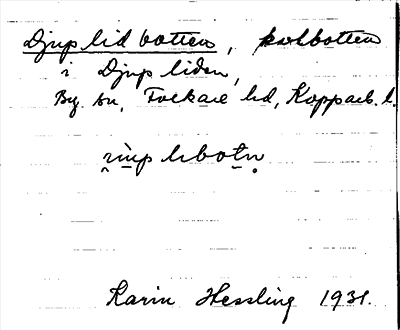 Djuplidbotten, kolbotten
i Djupliden,
By sn, Folkare hd, Kopparb. l.
Karin Hessling 1931.